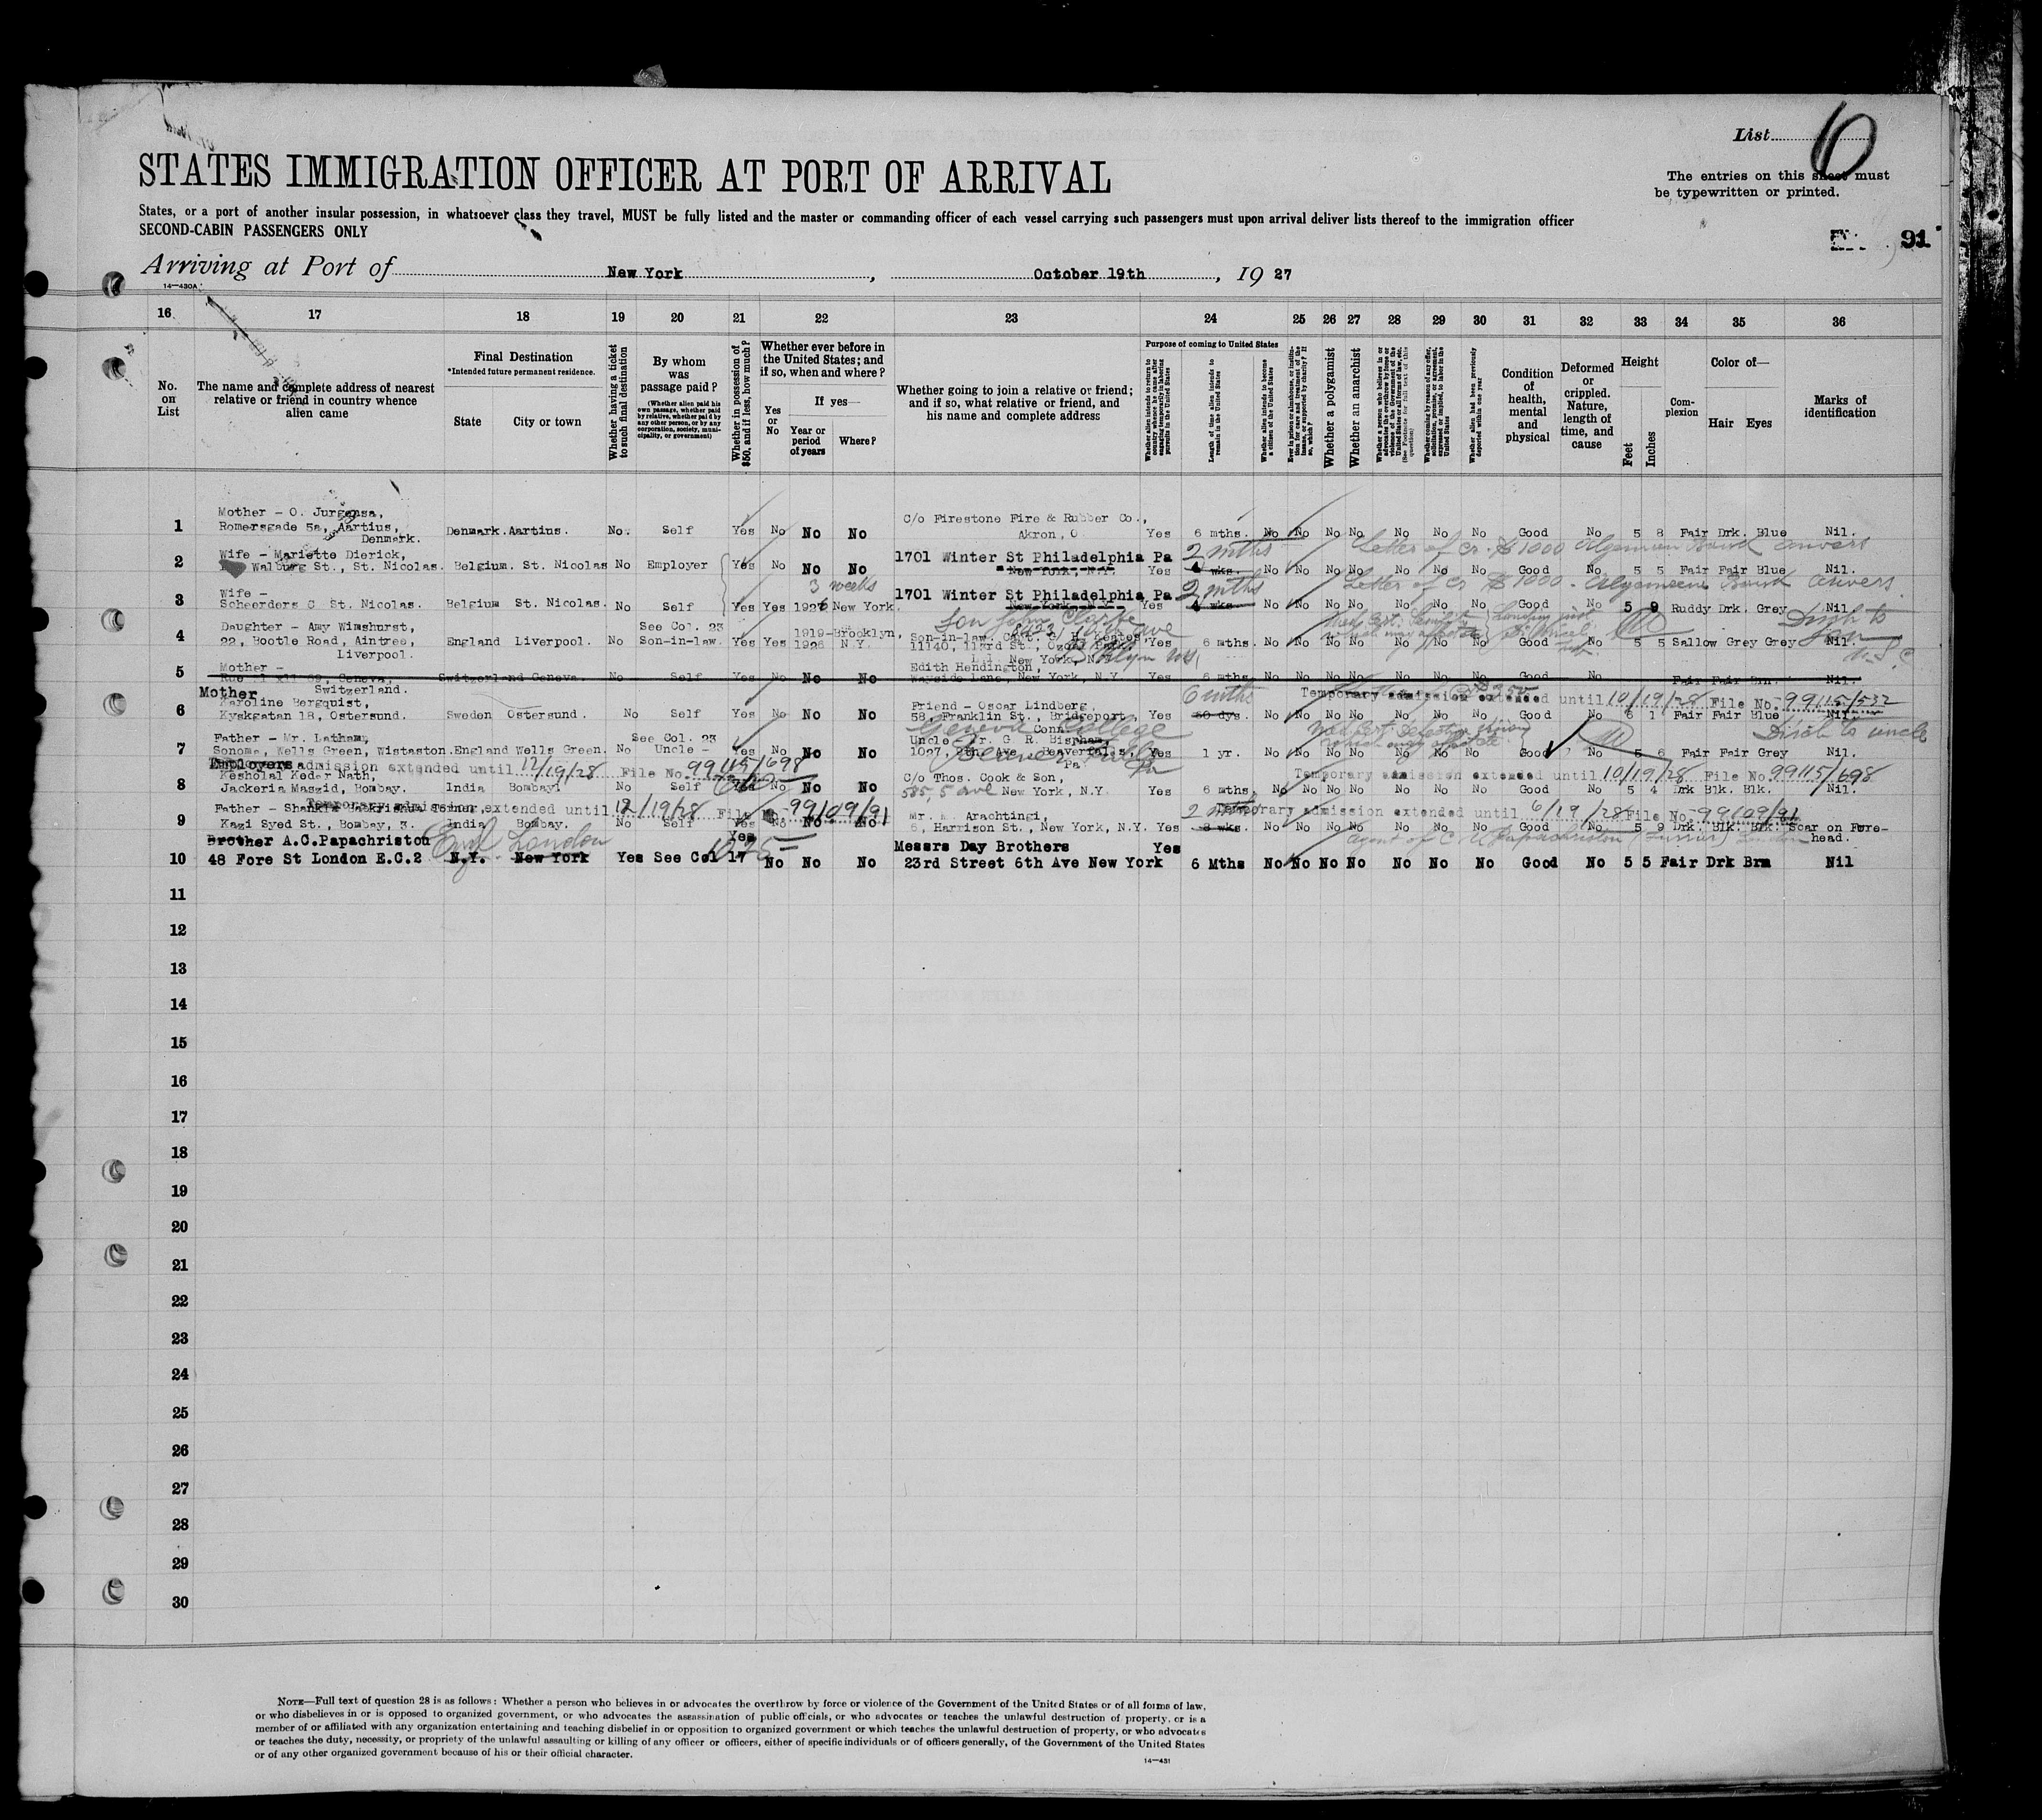 List 10
STATES IMMIGRATION OFFICER AT PORT OF ARRIVAL
The entries on this sheet must
be typewritten or printed.
States, or a port of another insular possession, in whatsoever class they travel, MUST be fully listed and the master or commanding officer of each vessel carrying such passengers must upon arrival deliver lists thereof to the immigration officer
SECOND-CABIN PASSENGERS ONLY
91
Arriving at Port of New York, October 19th, 1927
14—430A
16 17 18 19 20 21 22 23 24 25 26 27 28 29 30 31 32 33 34 35 36
No. on List
The name and complete address of nearest relative or friend in country whence alien came
Final Destination
*Intended future permanent residence.
State City or town
Whether having a ticket to such final destination
By whom was passage paid?
(Whether alien paid his own passage, whether paid by relative, whether paid by any other person, or by any corporation, society, municipality, or government)
Whether in possession of $50, and if less, how much?
Whether ever before in the United States; and if so, when and where?
Yes or No
If yes—
Year or period of years
Where?
Whether going to join a relative or friend; and if so, what relative or friend, and his name and complete address
Purpose of coming to United States
Whether alien intends to return to country whence he came after engaging temporarily in laboring pursuits in the United States
Length of time alien intends to remain in the United States
Whether alien intends to become a citizen of the United States
Ever in prison or almshouse, or institution for care and treatment of the insane, or supported by charity? If so, which?
Whether a polygamist
Whether an anarchist
Whether coming by reason of any offer, solicitation, promise, or agreement, expressed or implied, to labor in the United States
Whether alien had been previously deported within one year
Condition of health, mental and physical
Deformed or crippled. Nature, length of time, and cause
Height
Feet Inches
Complexion
Color of—
Hair Eyes
Marks of identification
1 Mother - O. Jurgensa,
Romersgade 5a, Aartius,
Denmark.
Denmark. Aartins. No. Self Yes No No No
C/o Firestone Fire & Rubber Co.,
Akron, O Yes 6 mths. No No No No No No No Good No 5 8 Fair Drk. Blue Nil.
2 Wife - Mariette Dierick,
Walburg St., St. Nicolas. Belgium. St. Nicolas No Employer Yes No No No
1701 Winter St Philadelphia Pa 2 mths Letter of Cr. $1000
New York, N.Y. Yes wks. No No No No No No No Good No 5 5 Fair Fair Blue Nil.
3 Wife -
Scheerders C St. Nicolas. Belgium St. Nicolas. No Self Yes Yes 1926 New York.
3 weeks
1701 Winter St Philadelphia Pa 2 mths Letter of Cr $1000
New York, N.Y. Yes wks No No No No No No No Good No 5 9 Ruddy Drk. Grey Nil
4 Daughter - Amy Wimshurst,
22, Bootle Road, Aintree,
Liverpool.
England Liverpool. No See Col. 23 Son-in-law. Yes Yes 1919-Brooklyn, 1926 N.Y.
Son John Clarke
Son-in-law, Capt.
11140, 113rd St.,
New York, N.Y.
Yes 6 mths. No No No No No No No Good No 5 5 Sallow Grey Grey Nil.
5 Mother -
Geneva,
Switzerland.
Switzerland Geneva No Self Yes No No No
Edith Hendington,
Wayside Lane, New York, N.Y. Yes 6 mths No No No No No No No Good No Fair Fair Brn. Nil.
6 Mother
Karoline Bergquist,
Kyskgatan 18, Ostersund. Sweden Ostersund. No Self Yes No No No
Friend - Oscar Lindberg.
58, Franklin St., Bridgeport,
Conn.
Yes 6 mths 60 dys. No No No No No No No Good No 6 1 Fair Fair Blue Nil.
Temporary admission extended until 10/19/28 File No. 99115/532
7 Father - Mr. Latham,
Sonoma, Wells Green, Wistaston. England Wells Green. No See Col. 23 Uncle - Yes No No No
Geneva College
Uncle, Mr. G. R. Bispham,
1027, 9th Ave., Beaverfalls,
Pa
Yes 1 yr. No No No No No No No Good No 5 6 Fair Fair Grey Nil.
Disch to uncle
admission extended until 12/19/28 File No. 99115/698
8 Employers
Kesholal Keder Nath,
Jackeria Maszid, Bombay. India Bombay. No Self No No No
C/o Thos. Cook & Son,
585, 5 ave New York, N.Y. Yes 6 mths. No No No No No No No No Good No 5 4 Drk Blk. Blk. Nil.
Temporary admission extended until 10/19/28 File No. 99115/698
9 Father -
Kazi Syed St., Bombay, 3. India Bombay. No Self Yes No No No
Temporary admission extended until 12/19/28 File No. 99109/91
Mr. Arachtingi,
6, Harrison St., New York, N.Y. Yes 2 mths 3 wks. No No No No No No No Good No 5 9 Drk. Blk. Blk. Scar on Forehead.
Temporary admission extended until 6/19/28 File No. 99109/91
10 Brother A.C.Papachriston
48 Fore St London E.C.2 Eng London N.Y. New York Yes See Col 17 Yes No No No
Messrs Day Brothers Yes
23rd Street 6th Ave New York 6 Mths No No No No No No No Good No 5 5 Fair Drk Brn Nil
11
12
13
14
15
16
17
18
19
20
21
22
23
24
25
26
27
28
29
30
NOTE—Full text of question 28 is as follows: Whether a person who believes in or advocates the overthrow by force or violence of the Government of the United States or of all forms of law,
or who disbelieves in or is opposed to organized government, or who advocates the assassination of public officials, or who advocates or teaches the unlawful destruction of property, or is a
member of or affiliated with any organization entertaining and teaching disbelief in or opposition to organized government or which teaches the unlawful destruction of property, or who advocates
or teaches the duty, necessity, or propriety of the unlawful assaulting or killing of any officer or officers, either of specific individuals or of officers generally, of the Government of the United States
or of any other organized government because of his or their official character.
14—431